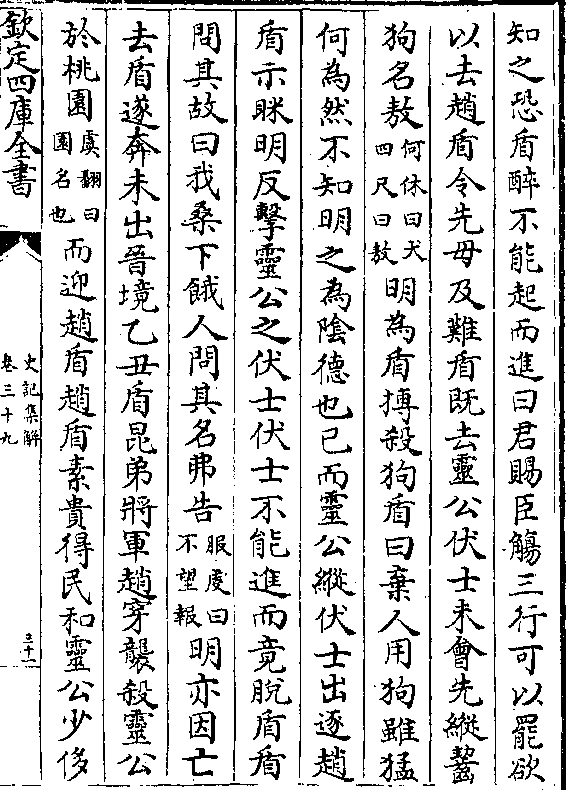 知之恐盾醉不能起而進曰君賜臣觴三行可以罷欲
以去趙盾令先毋及難盾既去靈公伏士未會先縱齧
狗名敖何休曰犬四尺曰敖明為盾搏殺狗盾曰棄人用狗雖猛
何為然不知明之為陰德也已而靈公縱伏士出逐趙
盾示眯明反擊靈公之伏士伏士不能進而竟脫盾盾
問其故曰我桑下餓人問其名弗告服虔曰不望報明亦因亡
去盾遂奔未出晉境乙丑盾昆弟將軍趙穿襲殺靈公
於桃園虞翻曰園名也而迎趙盾趙盾素貴得民和靈公少侈
欽定四庫全書
史記集解
卷三十九
三十一